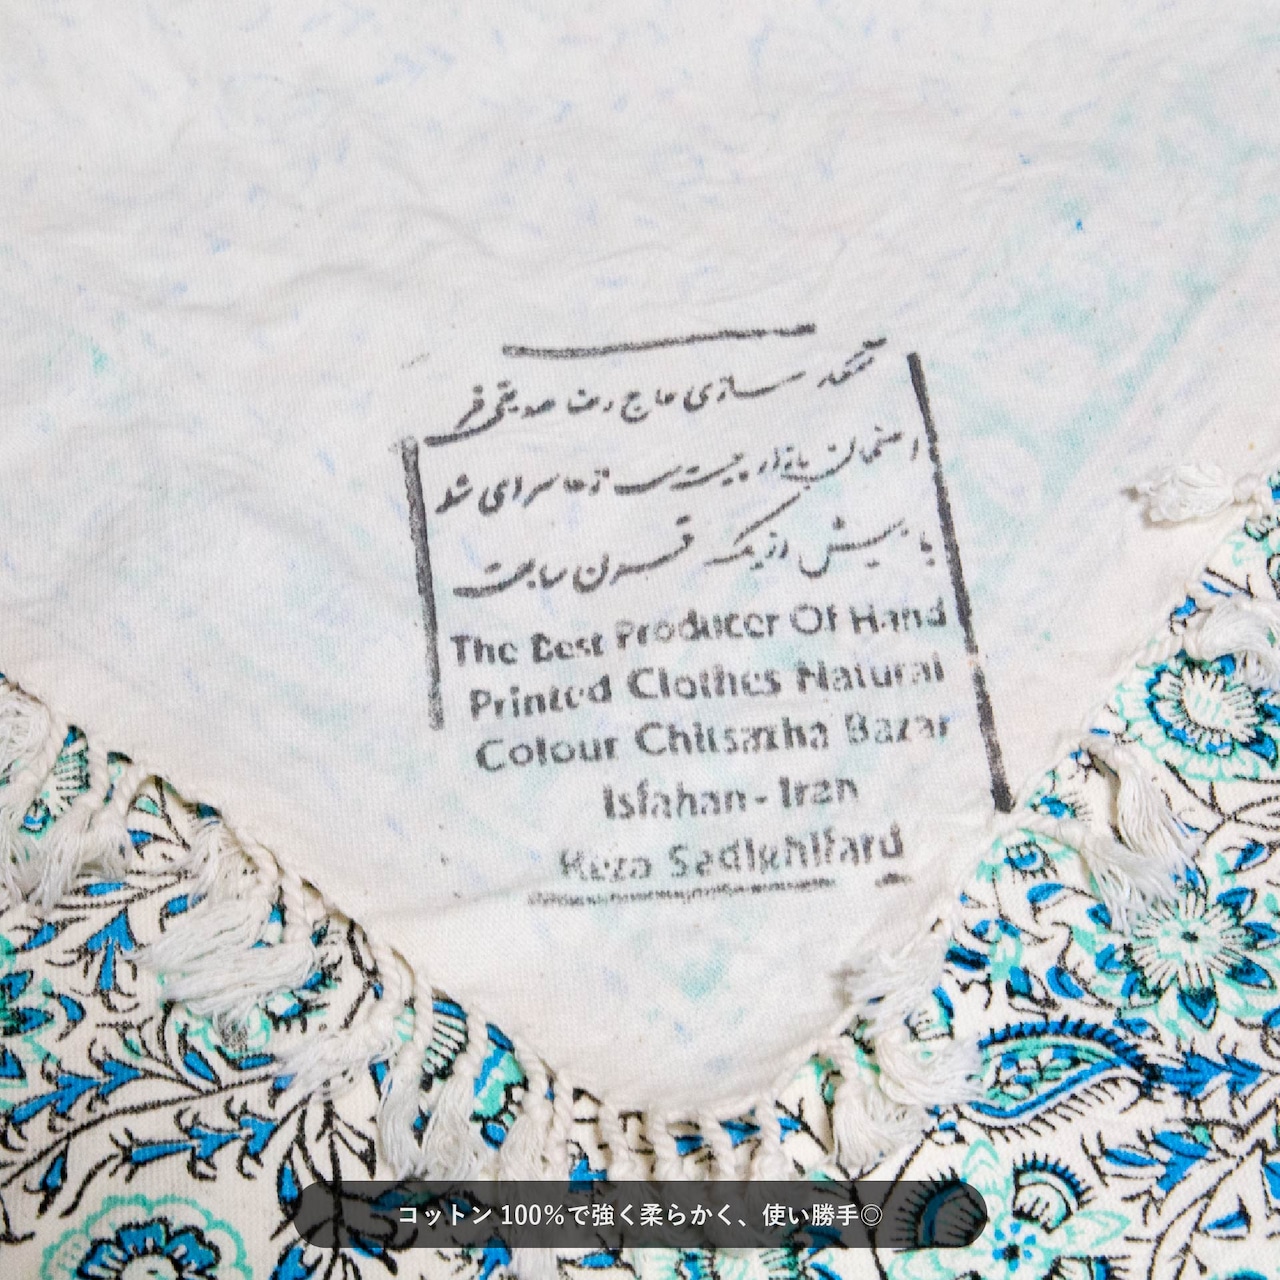 سازی حاج رضا صدیقی فر
اصفهان بازار چیت سازها سرای شو
با بیش از یک قرن سابقت
The Best Producer Of Hand
Printed Clothes Natural
Colour Chitsazha Bazar
Isfahan - Iran
Reza Sedighifard
コットン 100%で強く柔らかく、使い勝手◎